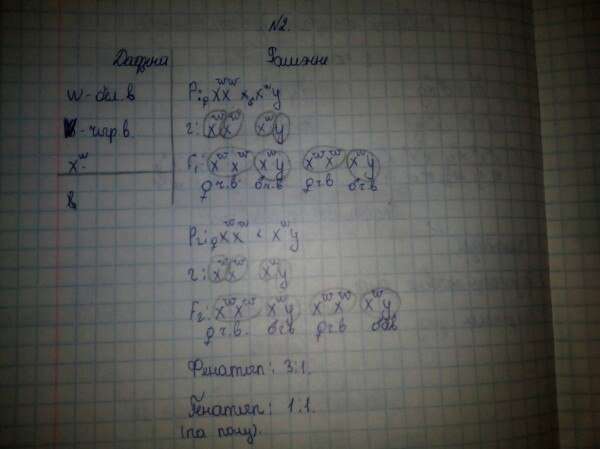 №2.
Дадзена
Рашэнне
w - бел. в
W - чыр в.
Xʷ
P₁: ♀ XᵂXʷ x ♂ Xʷy
г: XᵂXʷ Xʷy
F₁: XᵂXʷ Xʷy XʷXʷ Xʷy
♀ч.в. ♂ч.в ♀ч.в. ♂ч.в.
P₂: ♀ XᵂXʷ x Xʷy
г: XᵂXʷ Xʷy
F₂: XᵂXʷ Xʷy XʷXʷ Xʷy
♀ч.в. ♂ч.в ♀ч.в. ♂бв
Фенатып: 3:1.
Генатып: 1:1.
(па полу).